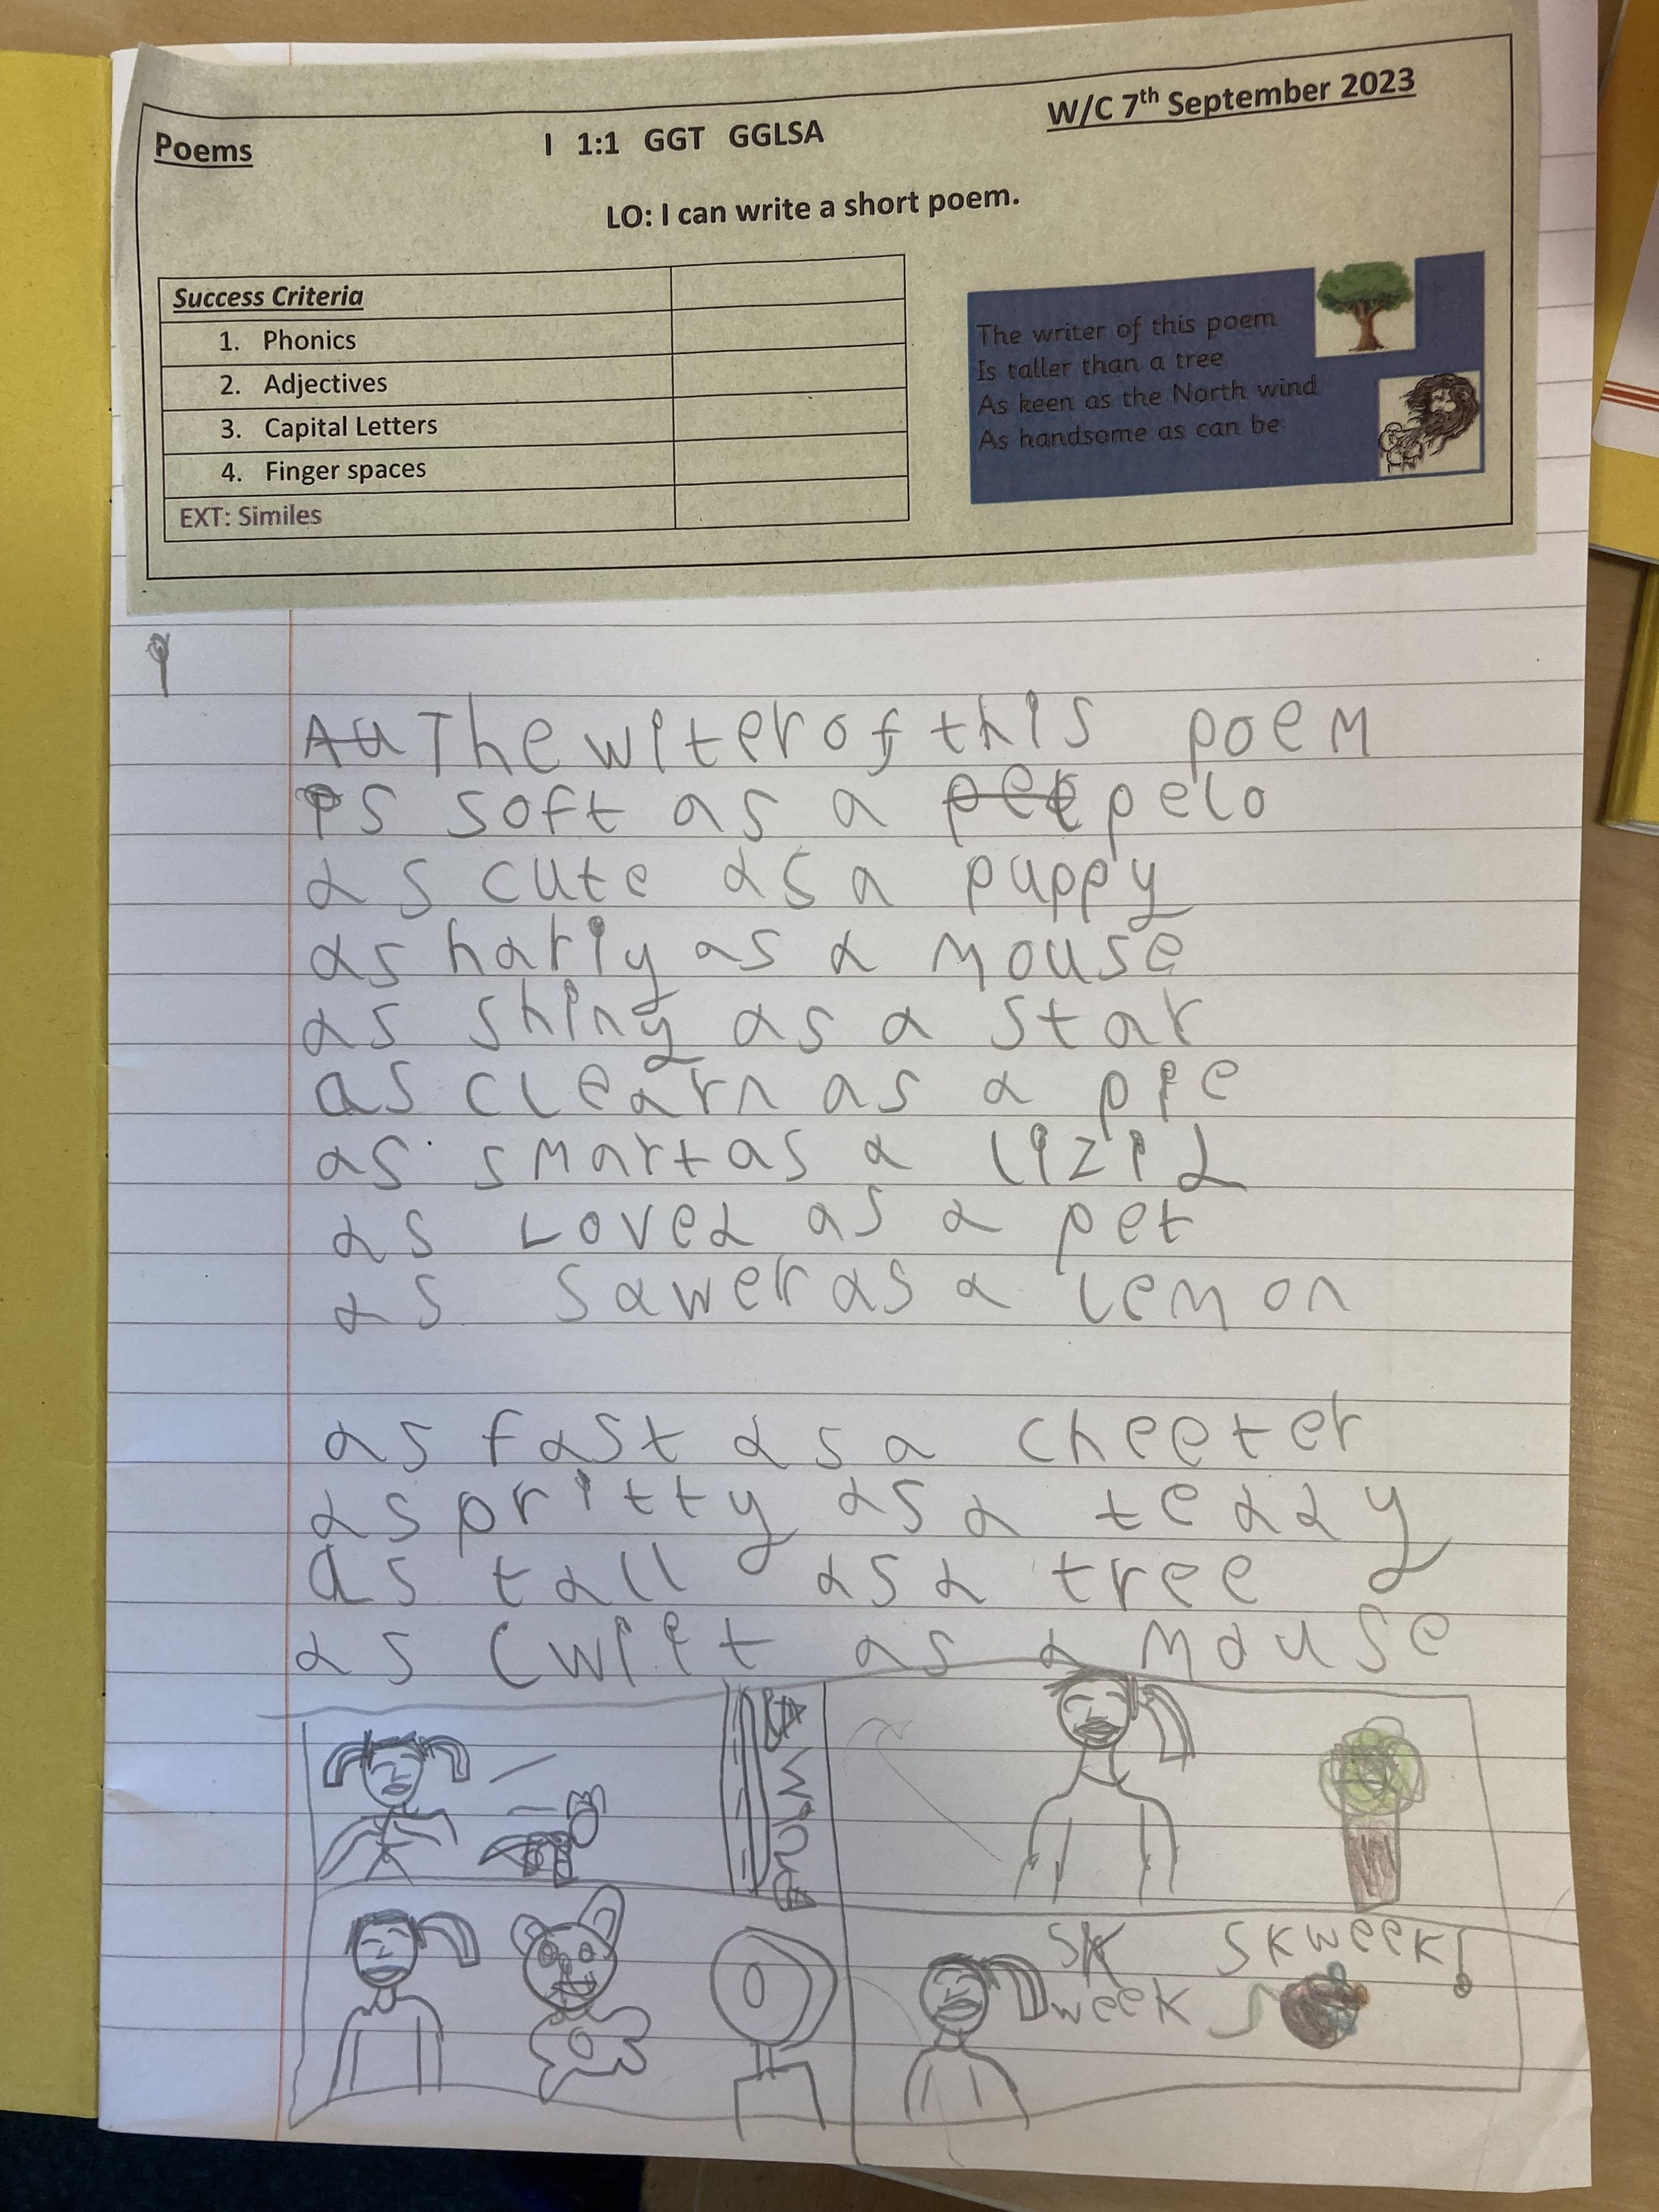 Poems I 1:1 GGT GGLSA W/C 7th September 2023
LO: I can write a short poem.
Success Criteria
1. Phonics
2. Adjectives
3. Capital Letters
4. Finger spaces
EXT: Similes
The writer of this poem
Is taller than a tree
As keen as the North wind
As handsome as can be
The witer of this poem
Is soft as a pelo
as cute as a puppy
as harly as a mouse
as shiny as a star
as clearn as a pie
as smart as a lizid
as Loved as a pet
as sawer as a lemon
as fast as a cheeter
as pritty as a teddy
as tall as a tree
as cwift as a mouse
SK skweek!
week